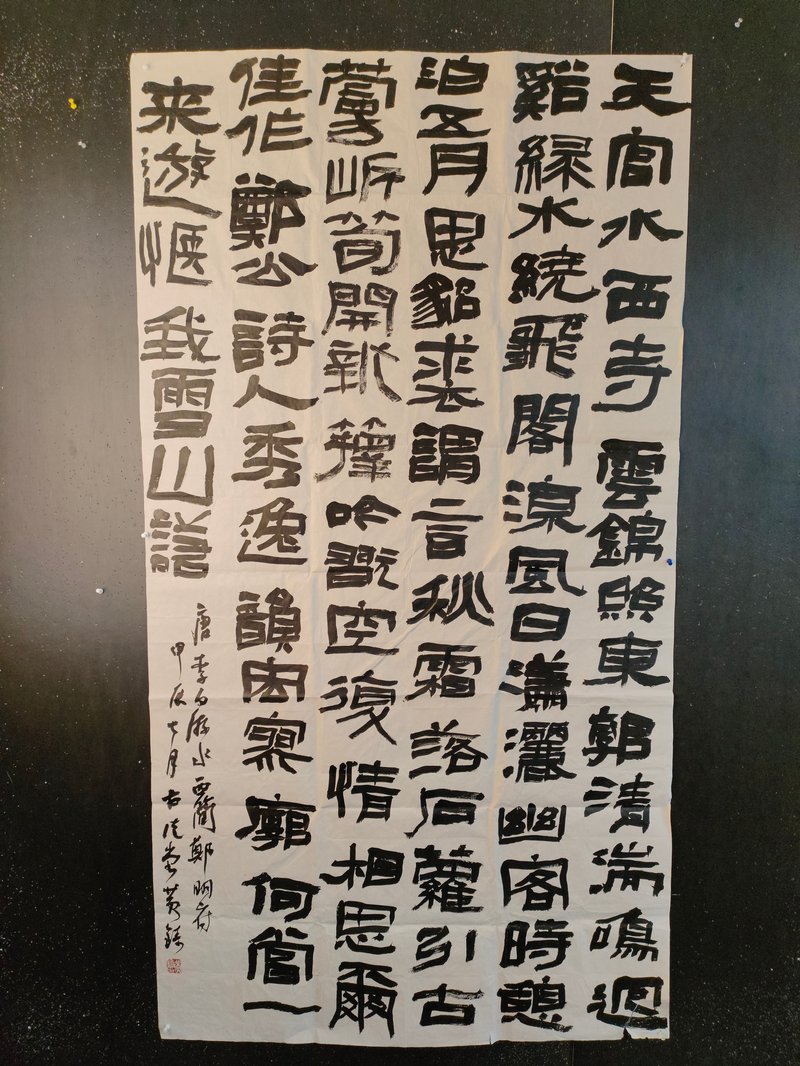 天宫水西寺雲錦照東郭清湍鳴迴
谿緑水繞飛閣涼風日瀟灑幽客時憩
泊五月思貂裘謂言秋霜落石蘿引古
蔓岍筍開新籜吟翫空復情相思爾
佳作鄭公詩人秀逸韻宏寥廓何當一
来遊愜我雪山諾
唐李白游水西簡鄭明府
甲辰七月古堂黄